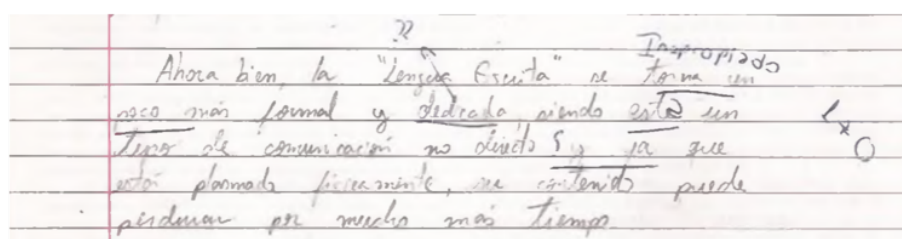 ??
Inapropiado
Ahora bien, la "Lengua Escrita" se torna un
poco más formal y dedicada, siendo esta un
tipo de comunicación no directa y ya que
está plasmada físicamente, su contenido puede
perdurar por mucho más tiempo